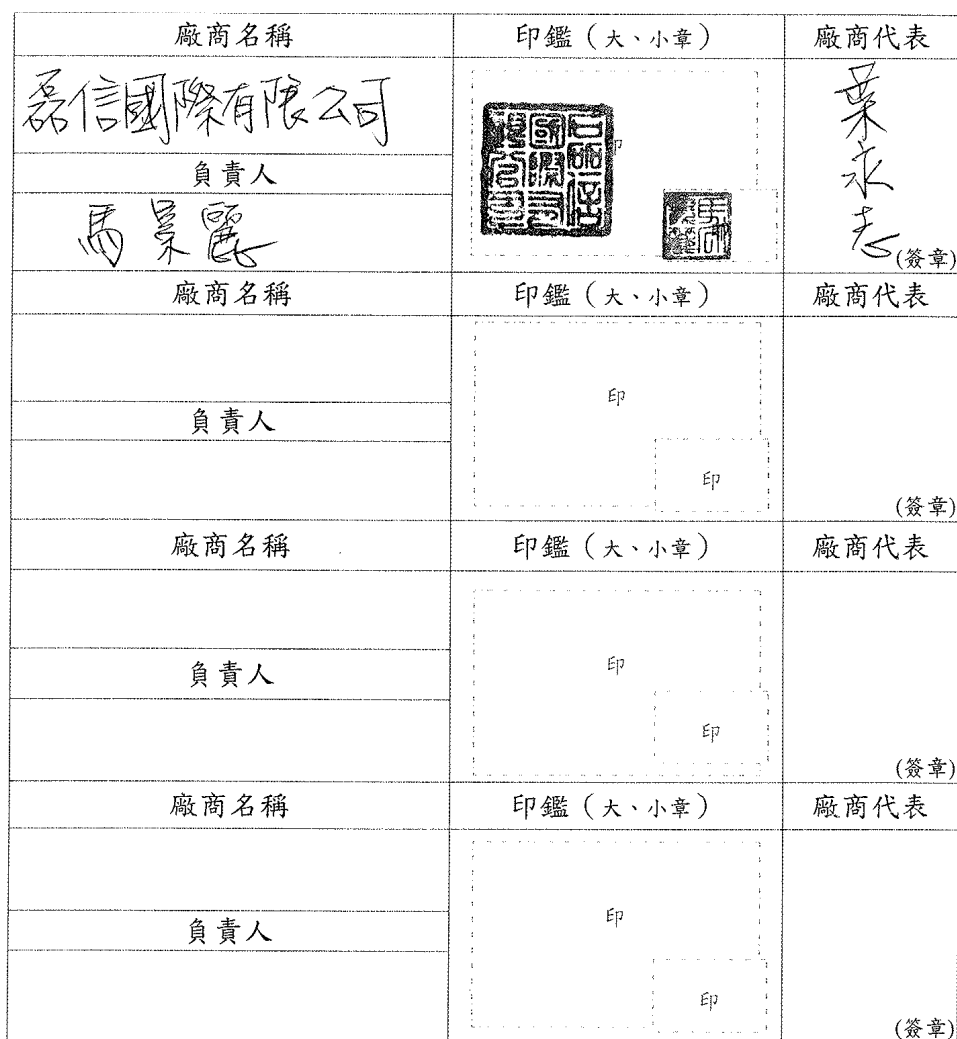 廠商名稱 印鑑（大、小章） 廠商代表
磊信國際有限公司
印
葉永志
負責人
馬景麗
(簽章)
廠商名稱 印鑑（大、小章） 廠商代表
印
負責人
印
(簽章)
廠商名稱 印鑑（大、小章） 廠商代表
印
負責人
印
(簽章)
廠商名稱 印鑑（大、小章） 廠商代表
印
負責人
印
(簽章)